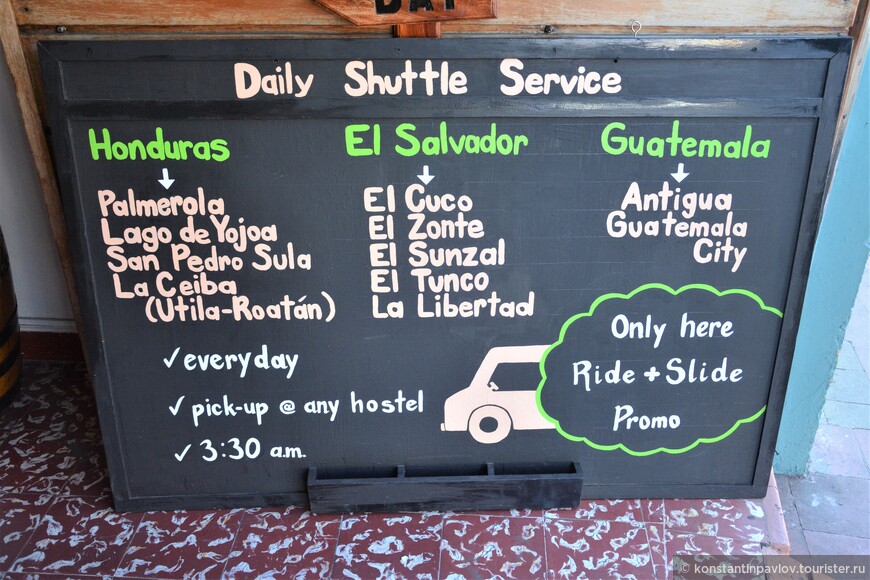 DAY
Daily Shuttle Service
Honduras
Palmerola
Lago de Yojoa
San Pedro Sula
La Ceiba
(Utila-Roatán)
El Salvador
El Cuco
El Zonte
El Sunzal
El Tunco
La Libertad
Guatemala
Antigua
Guatemala
City
✓ everyday
✓ pick-up @ any hostel
✓ 3:30 a.m.
Only here
Ride + Slide
Promo
© konstantinpavlov.tourister.ru